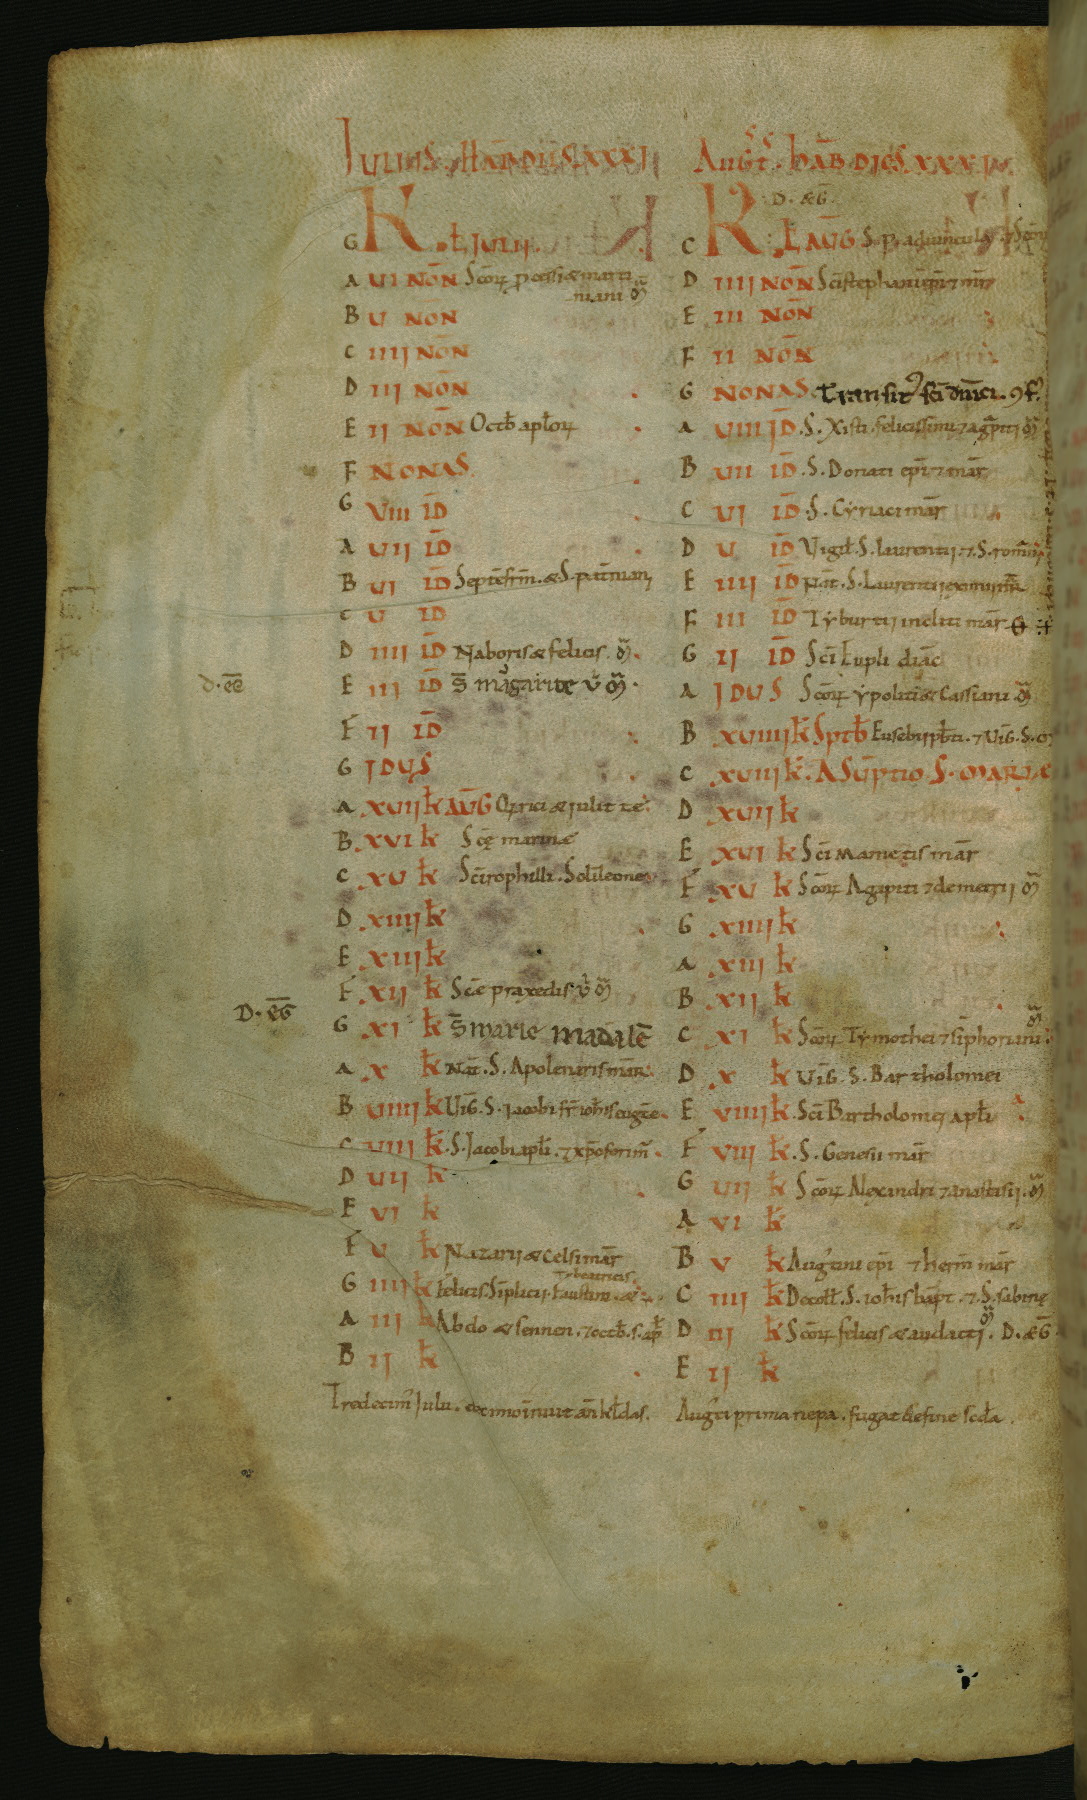 IULIUS HAB̄ DIES XXXI
G K L̄ IULII
A VI NON̄ Scōrꝝ pcessi & marti
niani m̄
B V NON̄
C IIII NON̄
D III NON̄
E II NON̄ Octb̄ apl̄orꝝ
F NONAS
G VIII ID̄
A VII ID̄
B VI ID̄ Septē frm̄. &
C V ID̄
D IIII ID̄ Naboris & felicis. m̄
d. eḡ
E III ID̄ S̄ margarite v̄ m̄
F II ID̄
G IDUS
A XVII k̄ AUḠ Qirici & iulitte
B XVI k̄ Scē marinæ
C XV k̄
D XIIII k̄
E XIII k̄
F XII k̄ Scē praxedis v̄ m̄
D. eḠ
G XI k̄ S̄ marie madalē
A X k̄ Nat̄. S. Apolenaris mār
B VIIII k̄ Uiḡ. S. iacobi fr̄ ioh̄is
C VIII k̄. S. Iacobi apl̄i. & xp̄oforim̄
D VII k̄
E VI k̄
F V k̄ Nazarii & Celsi mār
G IIII k̄ Felicis. Siplicii. Faustini. &
beatricis
A III k̄ Abdo & sennen. & octb̄. s. ap̄
B II k̄
Tredecim' Iulii. decimo innuit an̄ kl̄das.
AUḠT. HAB̄ DIES XXXI
D. æḠ.
C K L̄ AUḠ S. P. aduincula.
D IIII NON̄ Sc̄i stephani ep̄i & mr̄
E III NON̄
F II NON̄
G NONAS. Transit' sc̄i dn̄ici. ꝯf.
A VIII ID̄. S. Xisti. felicissimi & agapiti m̄
B VII ID̄. S. Donati ep̄i & mār
C VI ID̄. S. Cyriaci mār
D V ID̄ Vigil̄. S. laurentii. & S. romani
E IIII ID̄ Nat̄. S. Laurentii
F III ID̄ Tyburtii incliti mār
G II ID̄ Sc̄i Eupli diāc
A IDUS Scōrꝝ ypoliti & Cassiani. m̄
B XVIIII k̄ Sptb̄ Eusebii pb̄ti. & Uiḡ. S.
C XVIII k̄. ASŪPTIO S. MARIÆ
D XVII k̄
E XVI k̄ Sc̄i Mametis mār
F XV k̄ Scōrꝝ Agapiti & demetrii m̄
G XIIII k̄
A XIII k̄
B XII k̄
C XI k̄ Scōrꝝ Tymothei & siphoriani m̄
D X k̄ Uiḡ. S. Bartholomei
E VIIII k̄. Sc̄i Bartholomei apl̄i
F VIII k̄. S. Genesii mār
G VII k̄ Scōrꝝ Alexandri & anastasii. m̄
A VI k̄
B V k̄ Augustini ep̄i & herm̄ mār
C IIII k̄ Decoll̄. S. ioh̄is bapt̄. & S. sabinę
D III k̄ Scōrꝝ felicis & audacti m̄. D. æḠ
E II k̄
Aug'ti prima nepa. fugat de fine scd̄a.